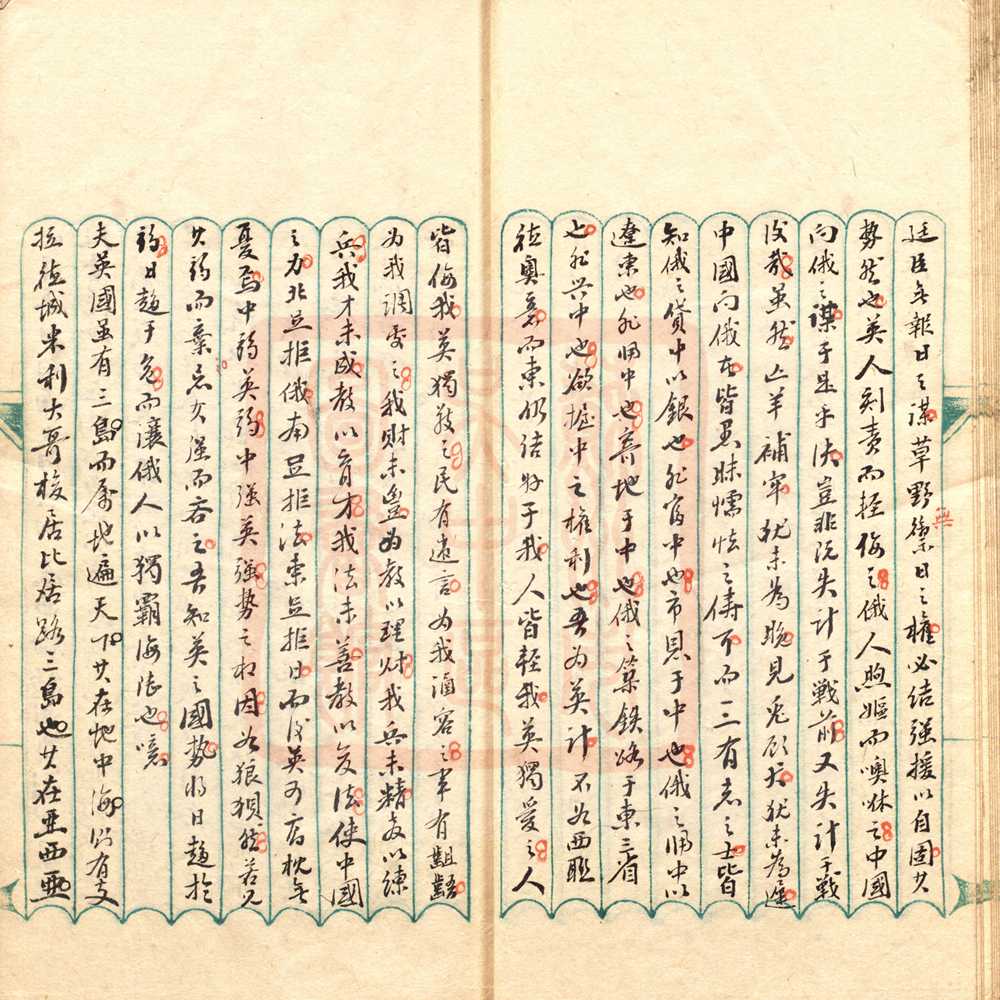 廷臣無報日之謀草野禦日之權必結強援以自固其
勢然也英人刻責而輕侮之俄人煦嫗而噢咻之中國
向俄之謀于是乎決豈非既失計于戰前又失計于戰
後哉雖然亡羊補牢犹未為晚見兎顧犬犹未為遲
中國向俄者皆愚昧懦怯之儔耳而一二有志之士皆
知俄之貸中以銀也非富中也市恩于中也俄之歸中以
遼東也非歸中也齊地于中也俄之築鉄路于東三省
也非興中也欲握中之權利也吾為英計不如西聯
德奧意而東仍結好于我人皆輕我英獨愛之人
皆侮我英獨敬之民有違言為我涵容之軍有齟齬
為我調零之我財未盈為教以理財我兵未精教以練
兵我才未成教以育才我法未善教以變法使中國
之力北足拒俄南足拒法東足拒日而後英可高枕無
憂焉中弱英弱中強英強勢之相因如狼狽然若見
其弱而棄忘其強而吞之吾知英之國勢將日趨於
弱日趨于危而讓俄人以獨霸海陸也噫
夫英國雖有三島而屬地遍天下其在地中海則有支
拉德城米利大哥梭居比居路三島也其在亞西亞